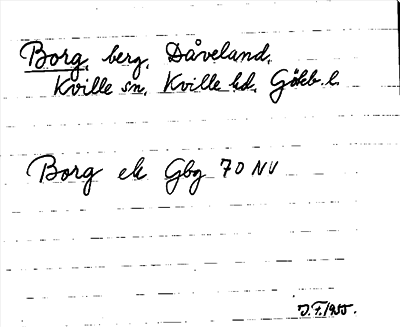 Borg, berg, Dåveland,
Kville sn, Kville hd. Gökb. l.
Borg ek Gbg 70 NV
J.F. 1955.